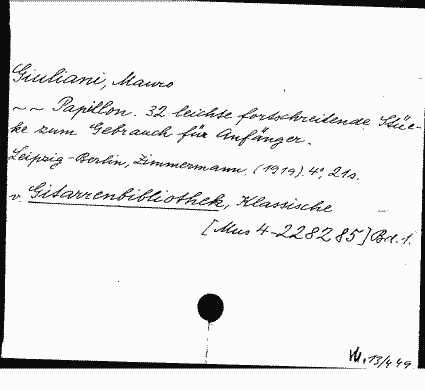 Giuliani, Mauro
~ ~ Papillon. 32 leichte fortschreitende Stüc-
ke zum Gebrauch für Anfänger.
Leipzig-Berlin, Zimmermann, (1919). 4°, 21s.
v. Gitarrenbibliothek, Klassische
[Mus 4-228285] Bd. 1.
13/449